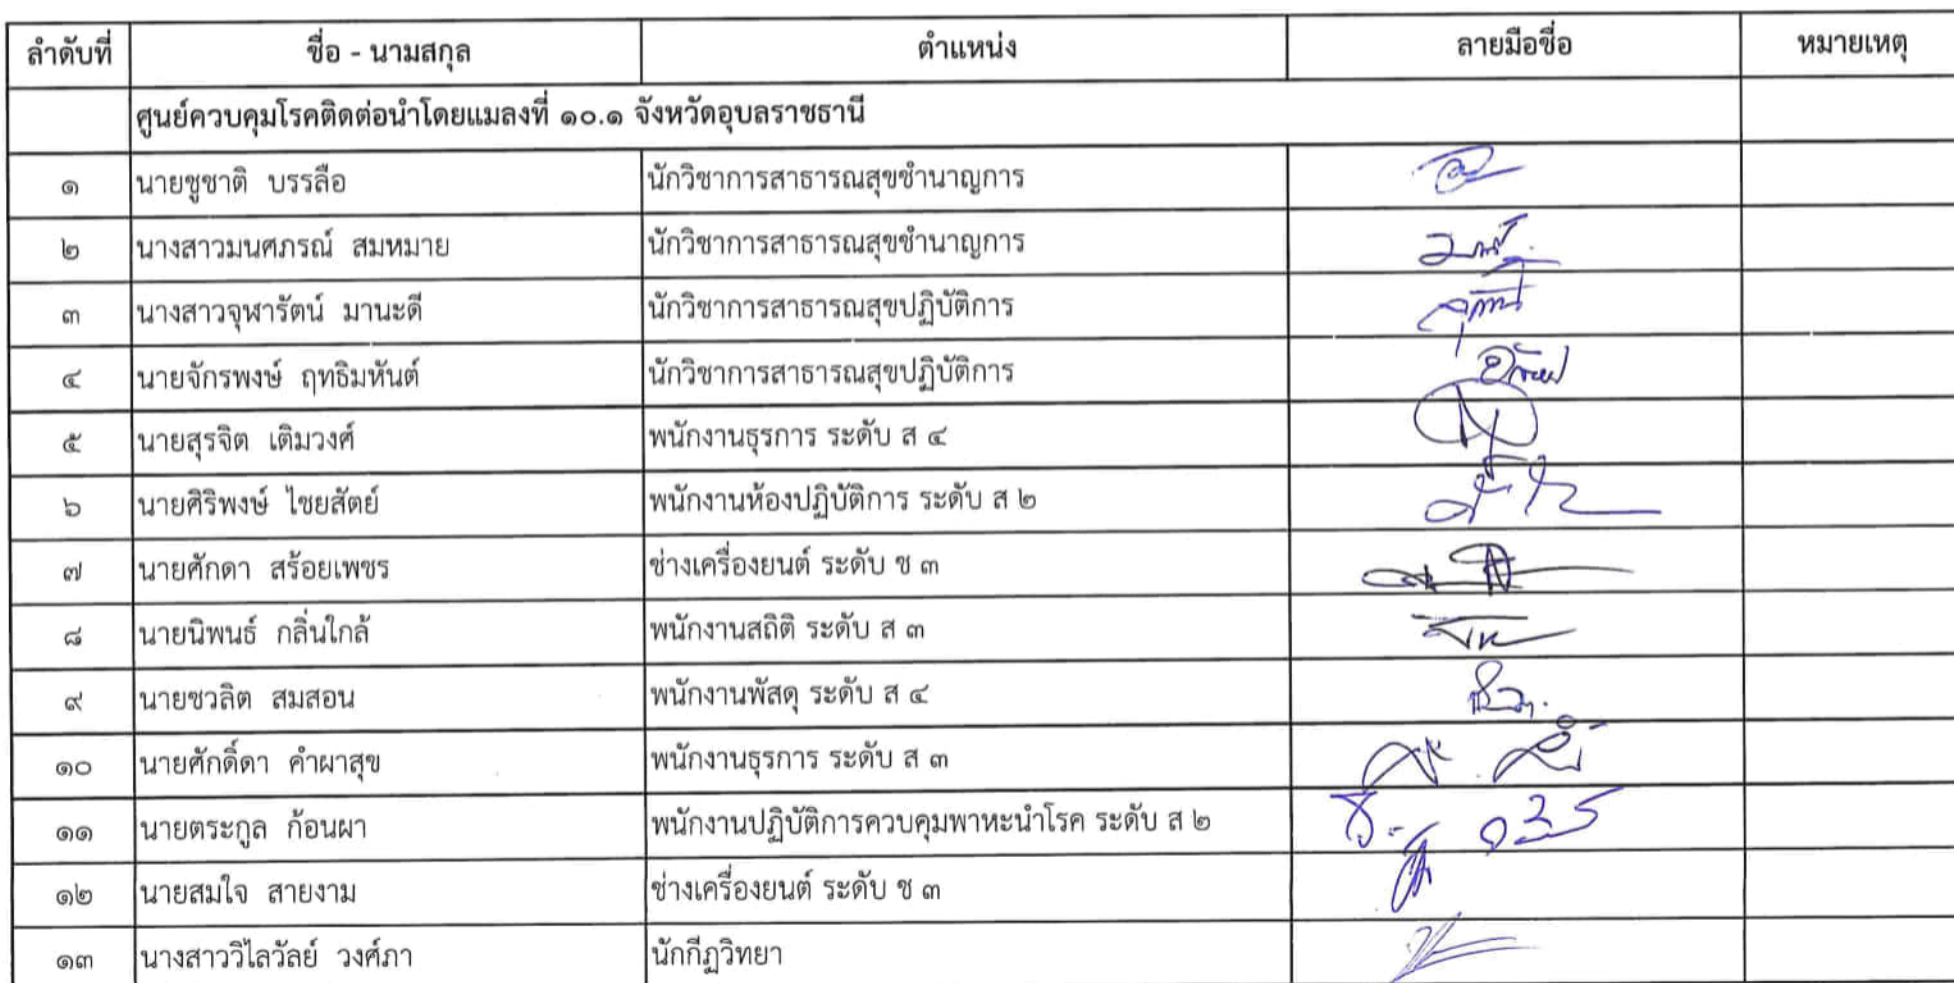 ลำดับที่ ชื่อ - นามสกุล ตำแหน่ง ลายมือชื่อ หมายเหตุ
ศูนย์ควบคุมโรคติดต่อนำโดยแมลงที่ ๑๐.๑ จังหวัดอุบลราชธานี
๑ นายชูชาติ บรรลือ นักวิชาการสาธารณสุขชำนาญการ
๒ นางสาวมนศภรณ์ สมหมาย นักวิชาการสาธารณสุขชำนาญการ
๓ นางสาวจุฬารัตน์ มานะดี นักวิชาการสาธารณสุขปฏิบัติการ
๔ นายจักรพงษ์ ฤทธิมหันต์ นักวิชาการสาธารณสุขปฏิบัติการ
๕ นายสุรจิต เติมวงศ์ พนักงานธุรการ ระดับ ส ๔
๖ นายศิริพงษ์ ไชยสัตย์ พนักงานห้องปฏิบัติการ ระดับ ส ๒
๗ นายศักดา สร้อยเพชร ช่างเครื่องยนต์ ระดับ ช ๓
๘ นายนิพนธ์ กลิ่นใกล้ พนักงานสถิติ ระดับ ส ๓
๙ นายชวลิต สมสอน พนักงานพัสดุ ระดับ ส ๔
๑๐ นายศักดิ์ดา คำผาสุข พนักงานธุรการ ระดับ ส ๓
๑๑ นายตระกูล ก้อนผา พนักงานปฏิบัติการควบคุมพาหะนำโรค ระดับ ส ๒
๑๒ นายสมใจ สายงาม ช่างเครื่องยนต์ ระดับ ช ๓
๑๓ นางสาววิไลวัลย์ วงศ์ภา นักกีฏวิทยา